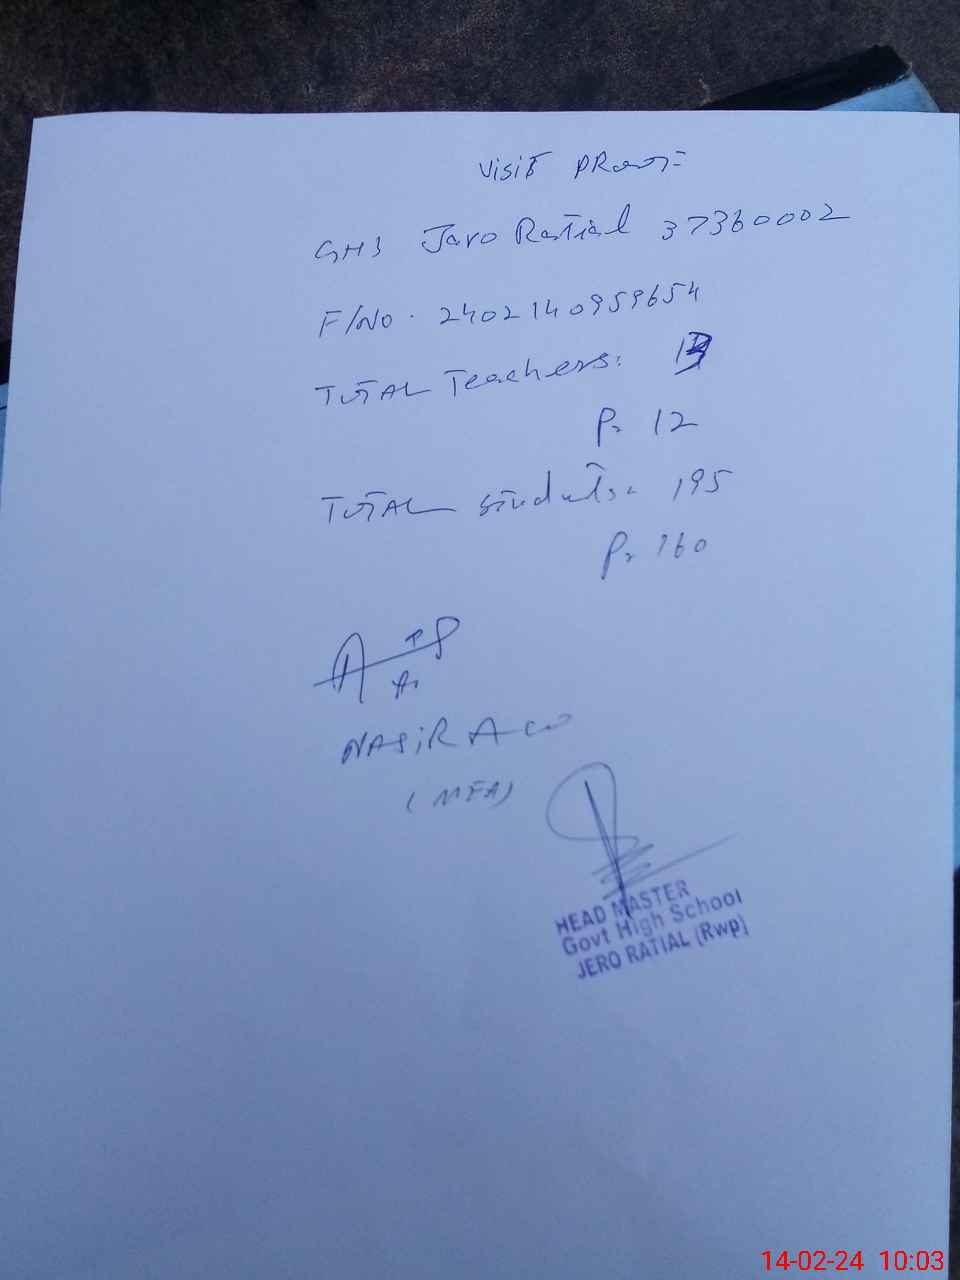 Visit PRoof
GHS Jaro Ratial 37360002
F/No. 2402140959654
TOTAL Teachers: 13
P= 12
TOTAL students= 195
P= 160
NASiR
(MEA)
HEAD MASTER
Govt High School
JERO RATIAL (Rwp)
14-02-24 10:03